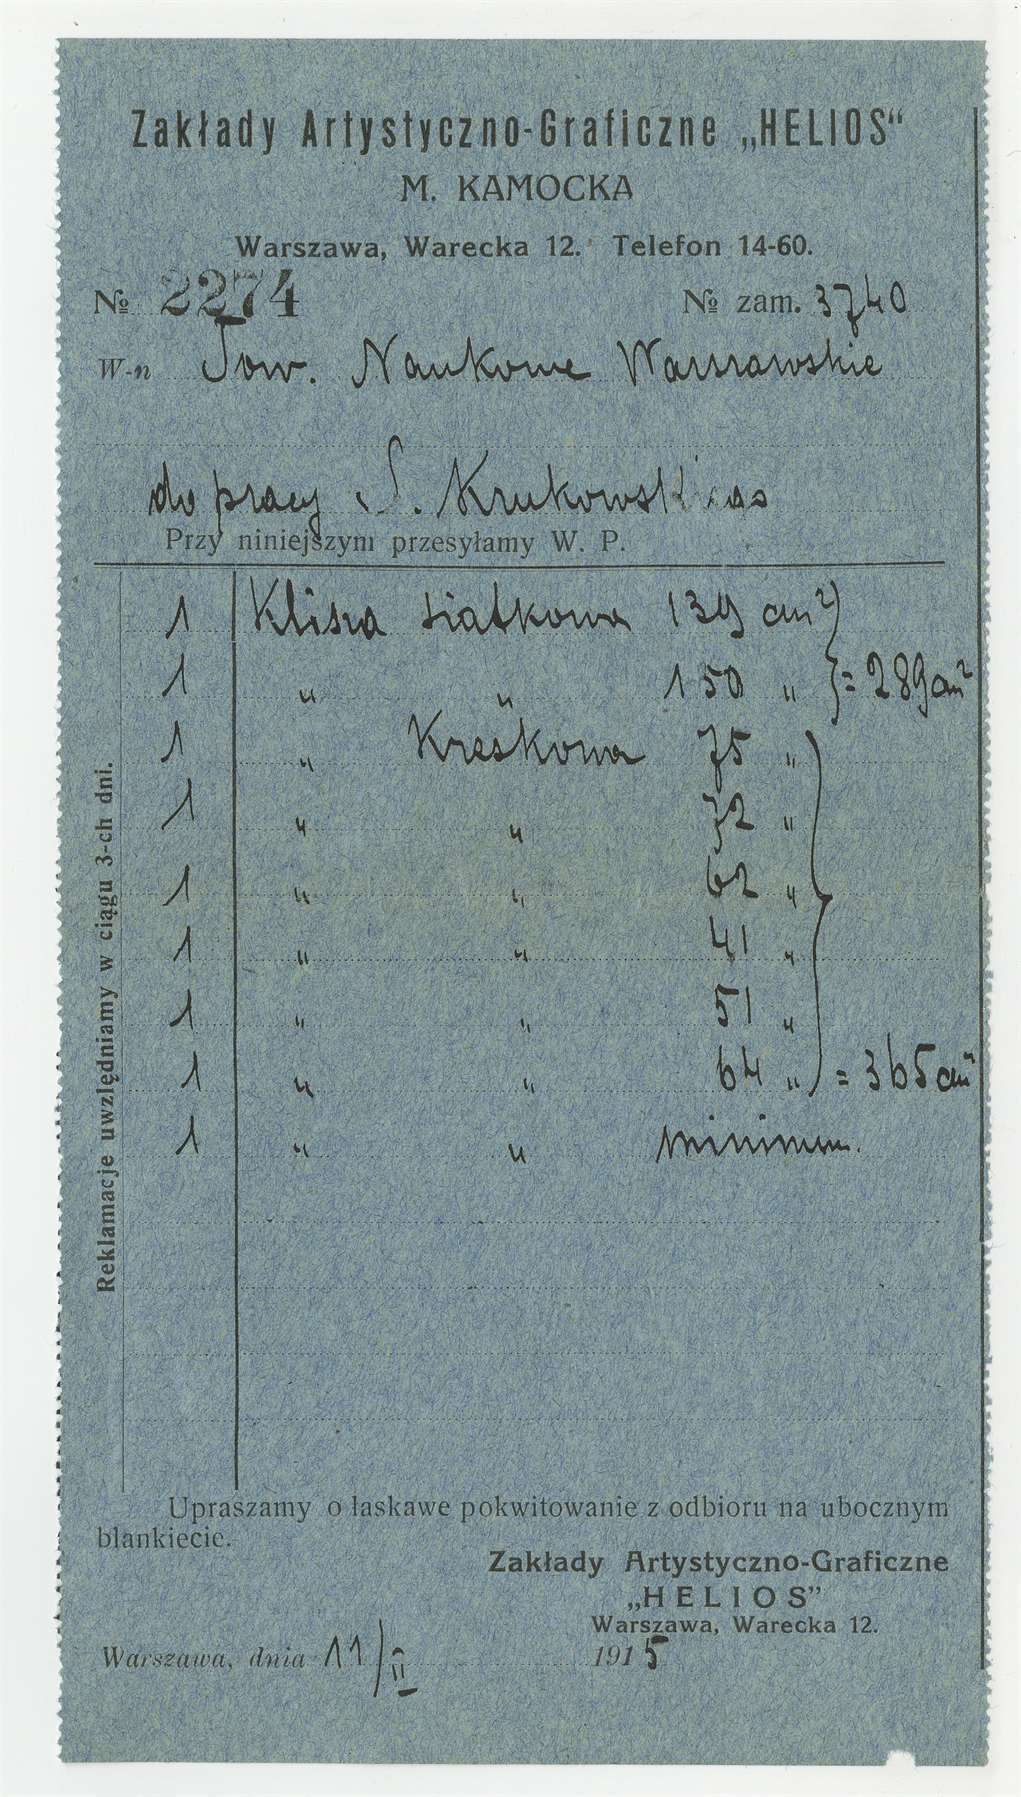 Zakłady Artystyczno-Graficzne „HELIOS"
M. KAMOCKA
Warszawa, Warecka 12. Telefon 14-60.
№ 2274 № zam. 3740
W-n Tow. Naukowe Warszawskie
do pracy S. Krukowskiego
Przy niniejszym przesyłamy W. P.
1 Klisza siatkowa 139 cm²
1 " " 150 " = 289 cm²
1 " Kreskowa 75 "
1 " " 72 "
1 " " 62 "
1 " " 41 "
1 " " 51 "
1 " " 64 " = 365 cm²
1 " " minimum.
Reklamacje uwzlędniamy w ciągu 3-ch dni.
Upraszamy o łaskawe pokwitowanie z odbioru na ubocznym
blankiecie.
Zakłady Artystyczno-Graficzne
„HELIOS"
Warszawa, Warecka 12.
Warszawa, dnia 11/II 1915